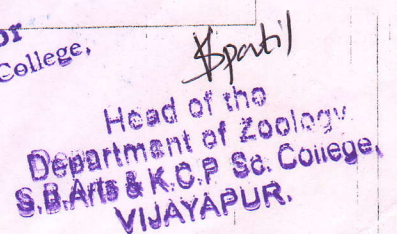 or
College,
Spatil
Head of the
Department of Zoology
S.B.Arts & K.C.P Sc. College,
VIJAYAPUR.